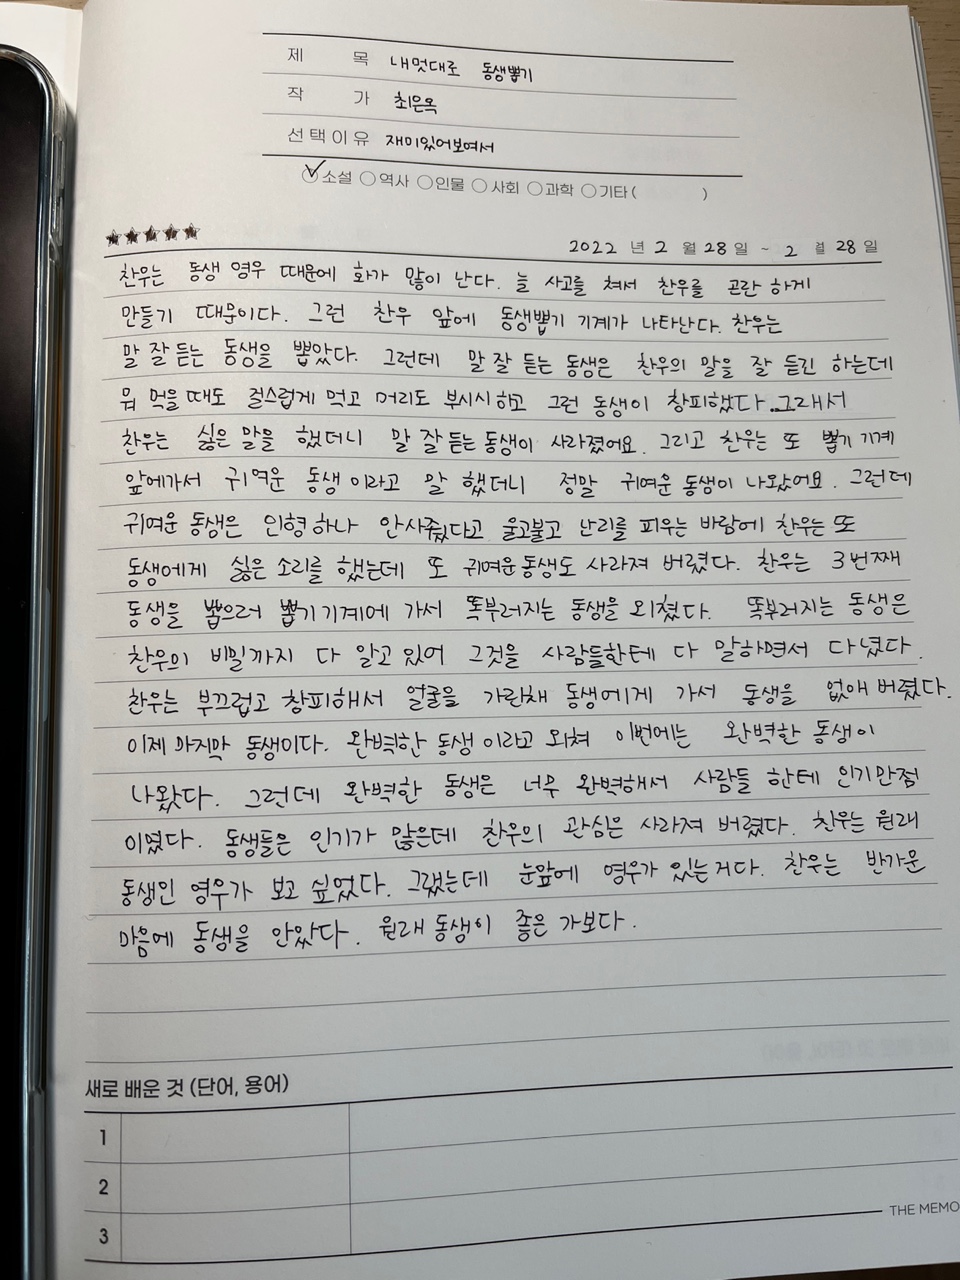 제 목 내멋대로 동생뽑기
작 가 최은옥
선택이유 재미있어보여서
소설 역사 인물 사회 과학 기타 ( )
★★★★★
2022 년 2 월 28 일 ~ 2 월 28 일
찬우는 동생 영우 때문에 화가 많이 난다. 늘 사고를 쳐서 찬우를 곤란 하게
만들기 때문이다. 그런 찬우 앞에 동생뽑기 기계가 나타난다. 찬우는
말 잘 듣는 동생을 뽑았다. 그런데 말 잘 듣는 동생은 찬우의 말을 잘 듣긴 하는데
뭐 먹을 때도 걸스럽게 먹고 머리도 부시시하고 그런 동생이 창피했다. 그래서
찬우는 싫은 말을 했더니 말 잘 듣는 동생이 사라졌어요. 그리고 찬우는 또 뽑기 기계
앞에가서 귀여운 동생 이라고 말 했더니 정말 귀여운 동생이 나왔어요. 그런데
귀여운 동생은 인형 하나 안사줬다고 울고불고 난리를 피우는 바람에 찬우는 또
동생에게 싫은 소리를 했는데 또 귀여운 동생도 사라져 버렸다. 찬우는 3번째
동생을 뽑으러 뽑기 기계에 가서 똑부러지는 동생을 외쳤다. 똑부러지는 동생은
찬우의 비밀까지 다 알고 있어 그것을 사람들한테 다 말하면서 다녔다.
찬우는 부끄럽고 창피해서 얼굴을 가린채 동생에게 가서 동생을 없애 버렸다.
이제 마지막 동생이다. 완벽한 동생 이라고 외쳐 이번에는 완벽한 동생이
나왔다. 그런데 완벽한 동생은 너무 완벽해서 사람들 한테 인기만점
이였다. 동생들은 인기가 많은데 찬우의 관심은 사라져 버렸다. 찬우는 원래
동생인 영우가 보고 싶었다. 그랬는데 눈앞에 영우가 있는거다. 찬우는 반가운
마음에 동생을 안았다. 원래 동생이 좋은 가보다.
새로 배운 것 (단어, 용어)
1
2
3
THE MEMO